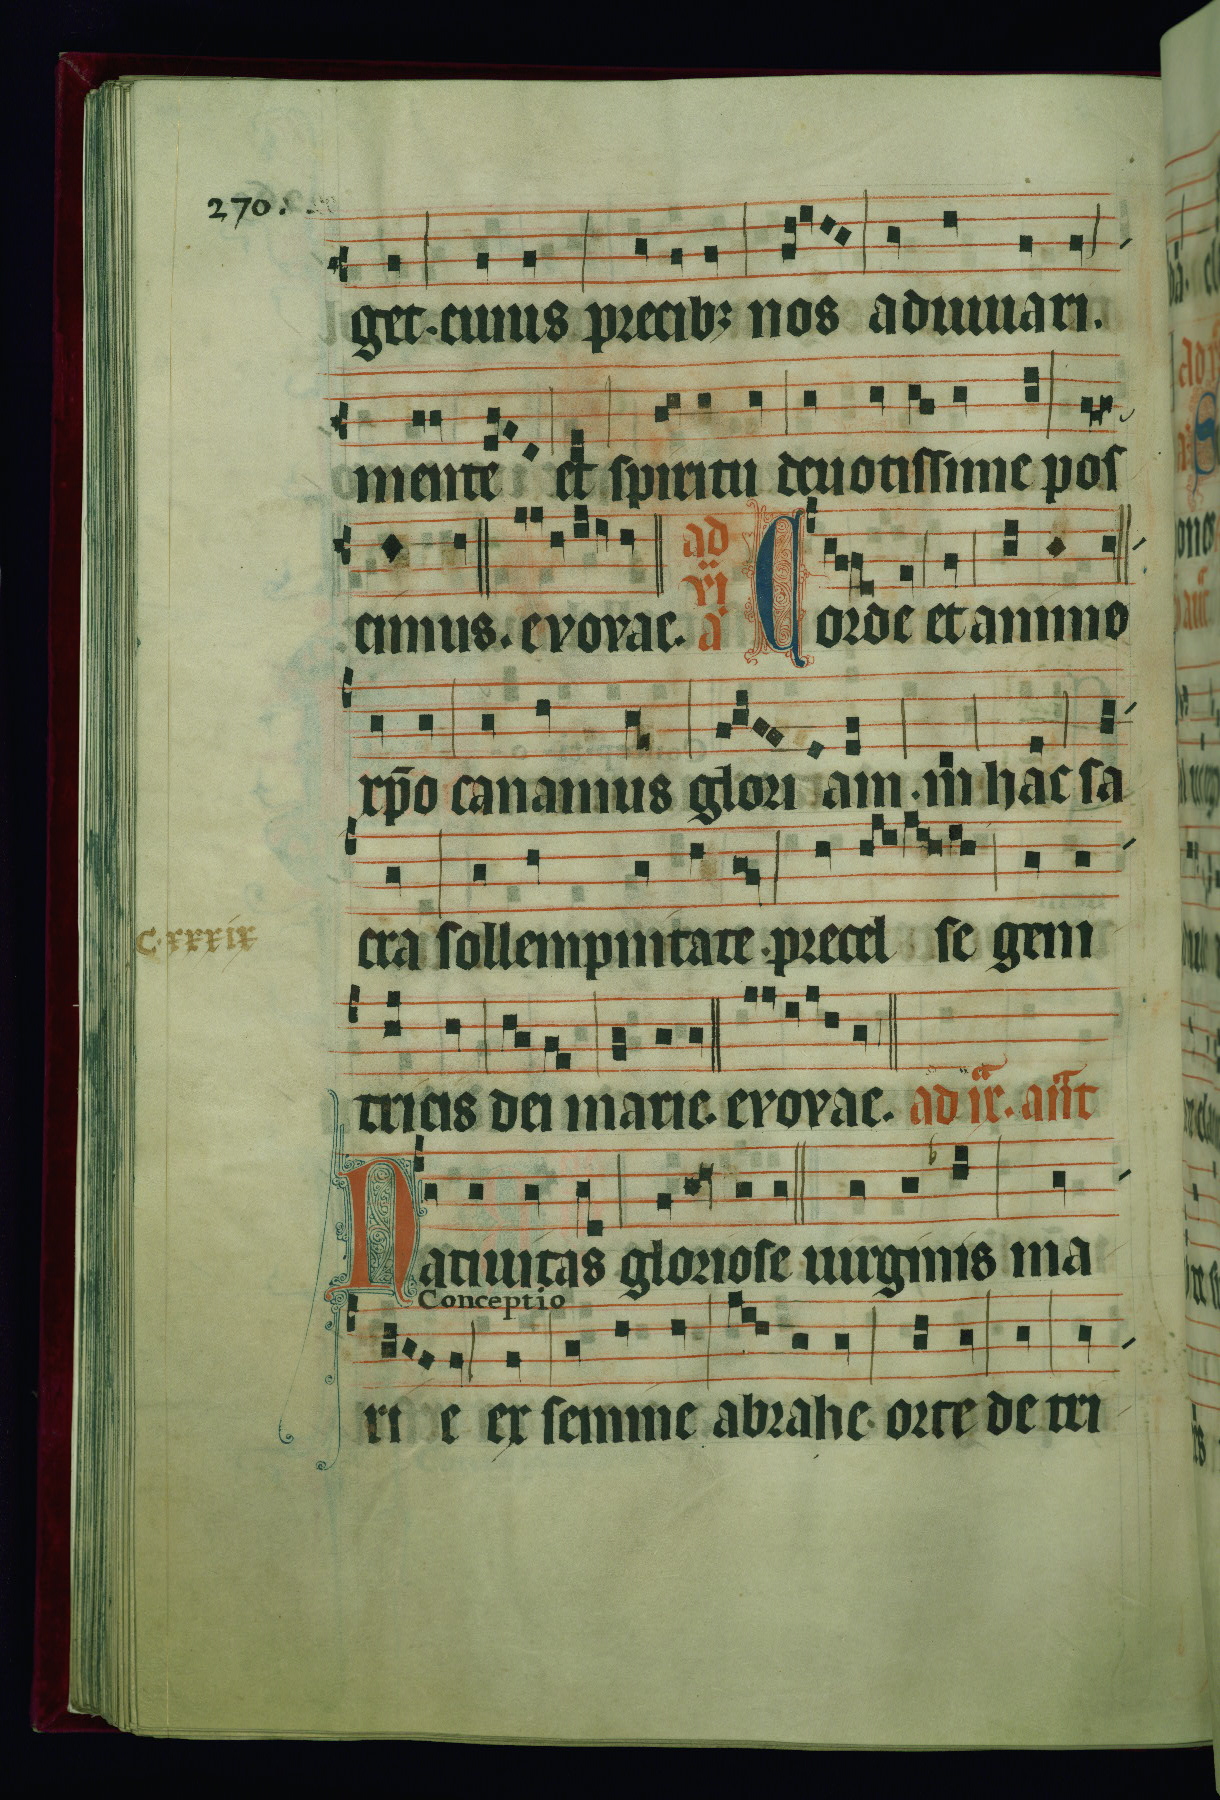 270.
get. cuius precibꝫ nos adiuuari.
mente et spiritu deuotissime pos
cimus. evovae. ad vi a Corde et animo
xp̄o canamus gloriam. in hac sa
C·xxxix
cra sollempnitate. precelse geni
tricis dei marie. evovae. ad ant
Natiuitas gloriose uirginis ma
Conceptio
rie ex semine abrahe orte de tri